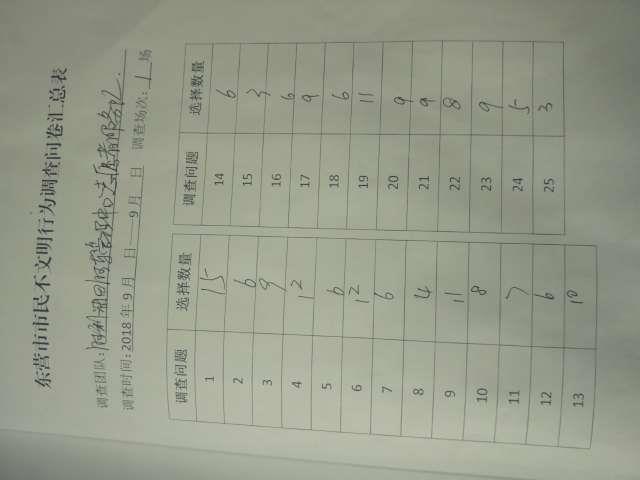 东营市市民不文明行为调查问卷汇总表
调查团队:
调查时间:2018年9月 日——9月 日 调查场次:1场
调查问题 选择数量 调查问题 选择数量
1 15 14 6
2 6 15 3
3 9 16 6
4 12 17 9
5 6 18 6
6 12 19 11
7 6 20 9
8 4 21 9
9 11 22 8
10 8 23 9
11 7 24 5
12 6 25 3
13 10